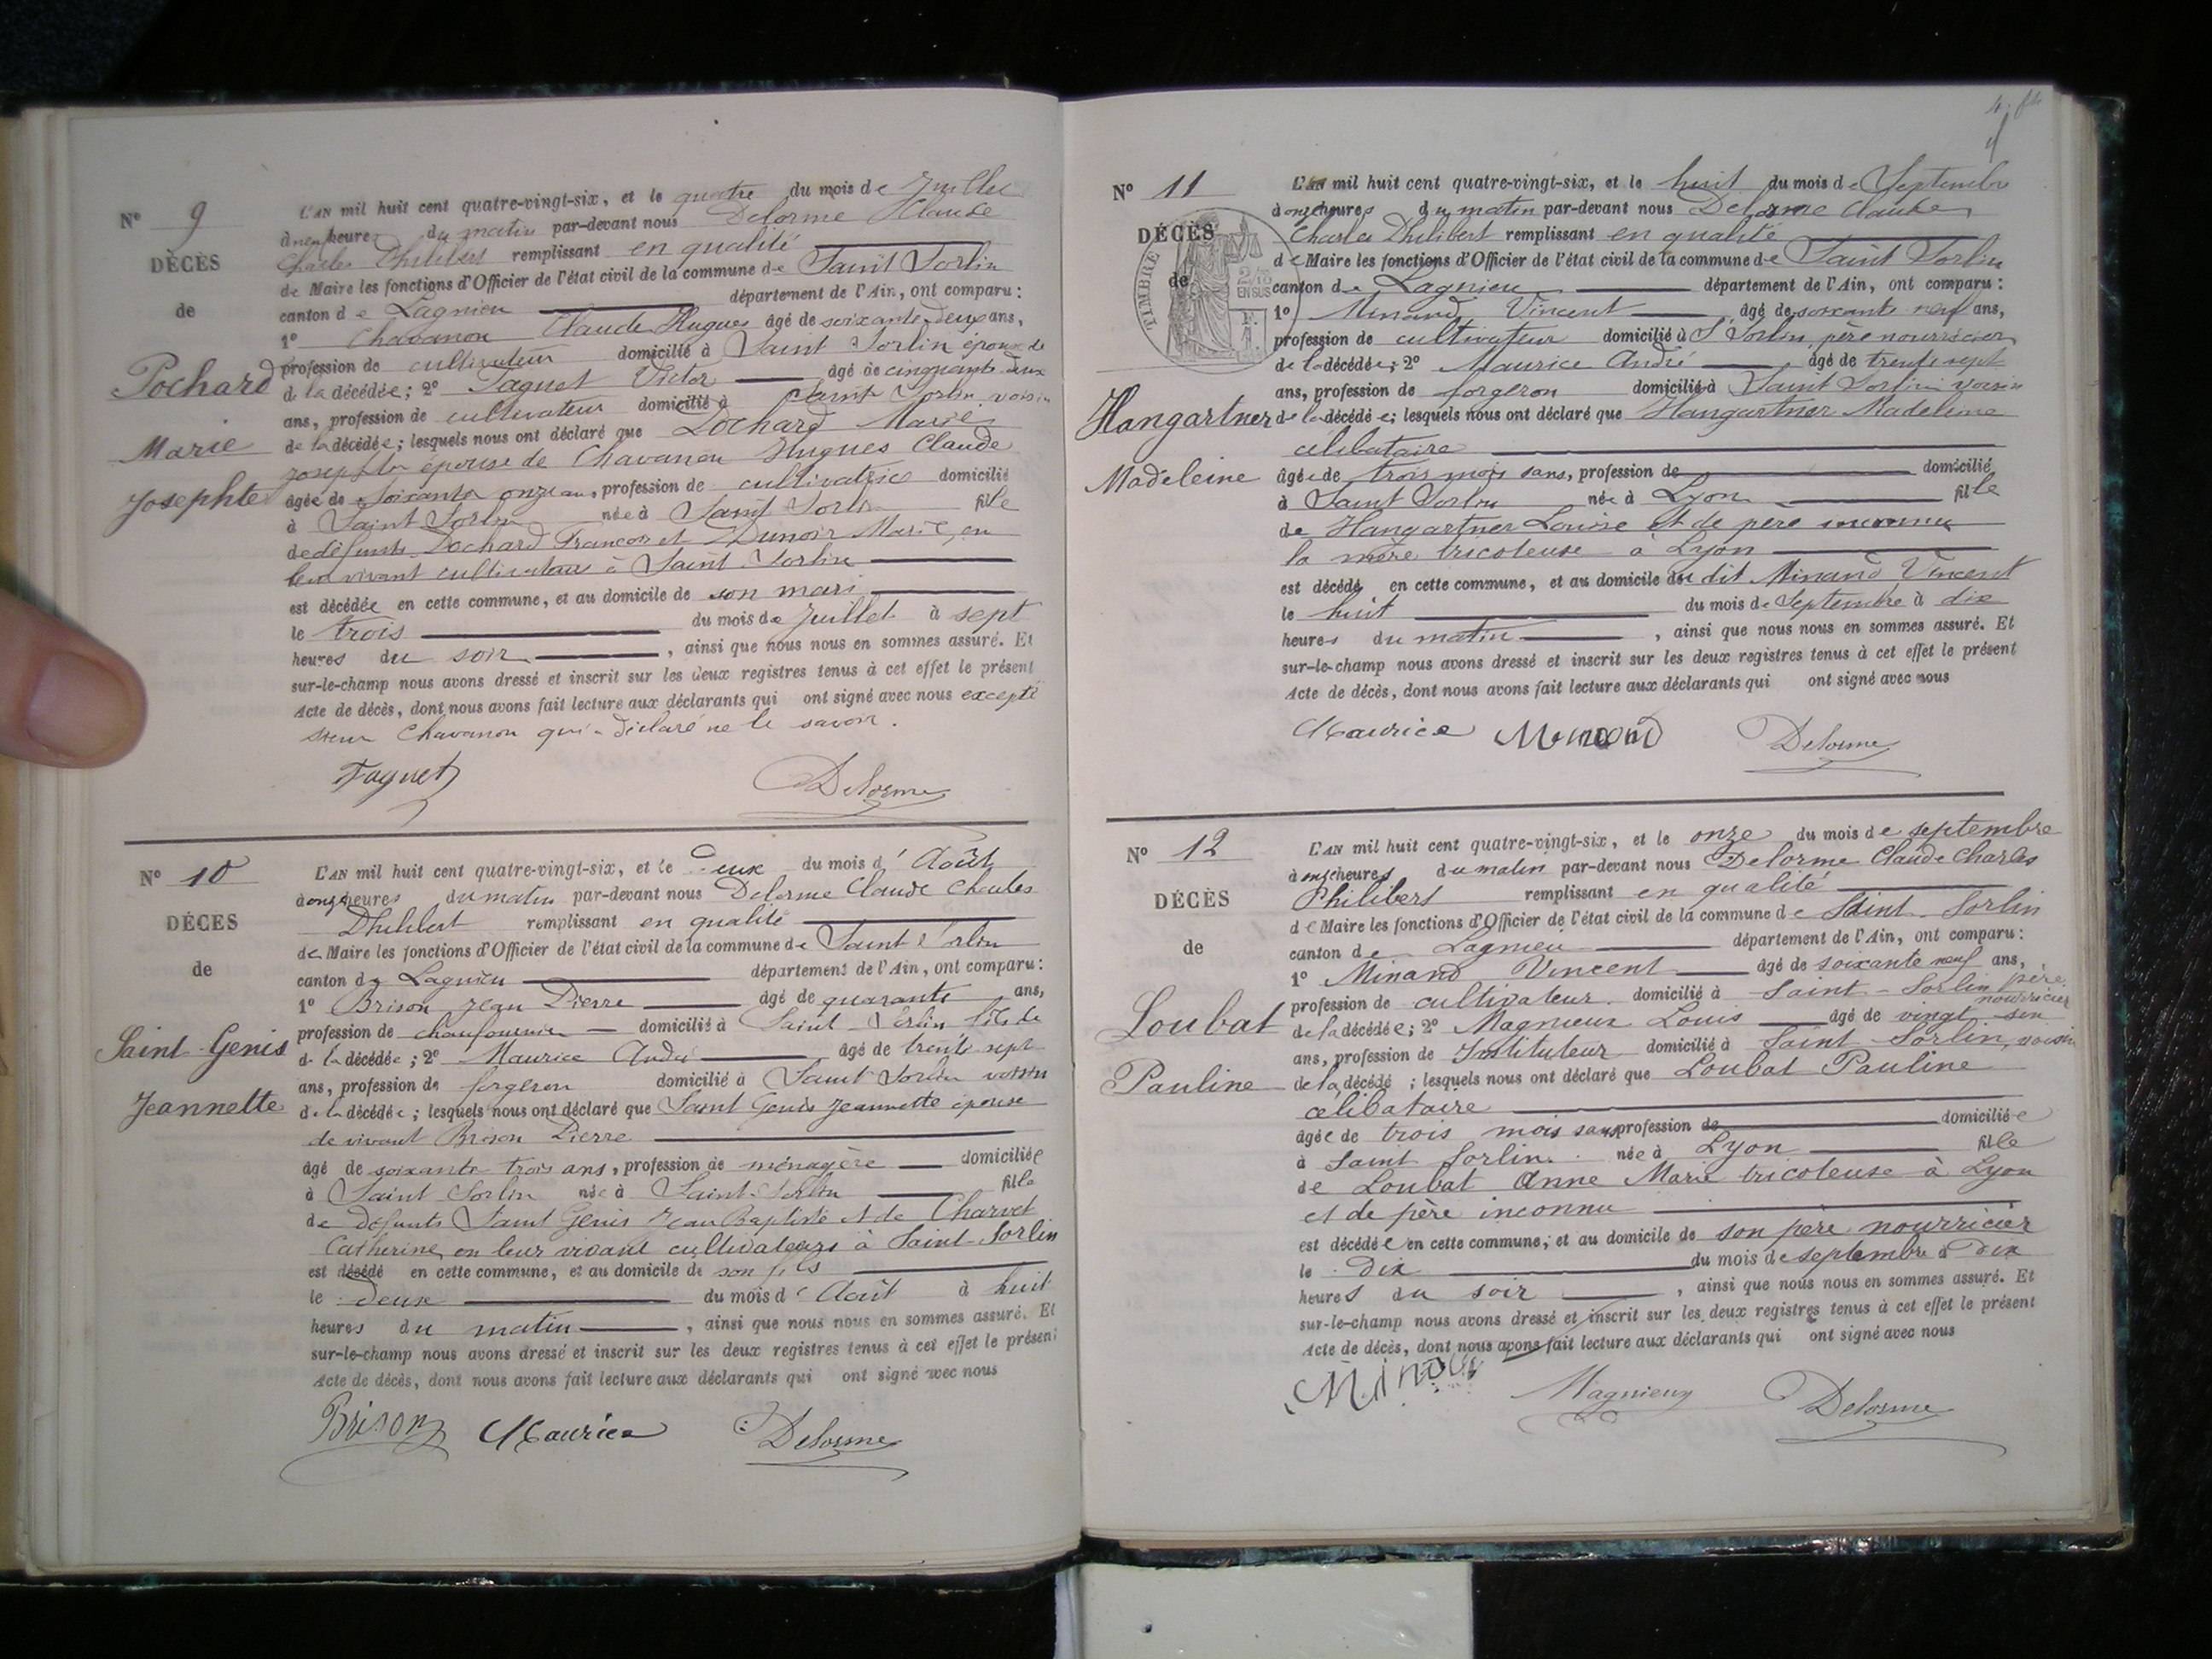 N° 9
DÉCÈS
de
Pochard
Marie
Josephte
L'AN mil huit cent quatre-vingt-six, et le quatre du mois de Juillet
à neuf heures du matin par-devant nous Delorme Claude
Charles Philibert remplissant en qualité
de Maire les fonctions d'Officier de l'état civil de la commune de Saint Sorlin
canton de Lagnieu département de l'Ain, ont comparu :
1° Chavanon Claude Hugues âgé de soixante deux ans,
profession de cultivateur domicilié à Saint Sorlin époux de
de la décédée ; 2° Paquet Victor âgé de cinquante deux
ans, profession de cultivateur domicilié à Saint Sorlin voisin
de la décédée ; lesquels nous ont déclaré que Pochard Marie
Josephte épouse de Chavanon Hugues Claude
âgée de soixante onze ans, profession de cultivatrice domicilié
à Saint Sorlin née à Saint Sorlin fille
de défunts Pochard Francois et Dunoir Marie, en
leur vivant cultivateurs à Saint Sorlin
est décédée en cette commune, et au domicile de son mari
le trois du mois de Juillet à sept
heures du soir, ainsi que nous nous en sommes assuré. Et
sur-le-champ nous avons dressé et inscrit sur les deux registres tenus à cet effet le présent
Acte de décès, dont nous avons fait lecture aux déclarants qui ont signé avec nous excepté
sieur Chavanon qui a déclaré ne le savoir.
Paquet Delorme
N° 10
DÉCÈS
de
Saint-Genis
Jeannette
L'AN mil huit cent quatre-vingt-six, et le Deux du mois d'Août
à onze heures du matin par-devant nous Delorme Claude Charles
Philibert remplissant en qualité
de Maire les fonctions d'Officier de l'état civil de la commune de Saint Sorlin
canton de Lagnieu département de l'Ain, ont comparu :
1° Brison Jean Pierre âgé de quarante ans,
profession de chaufournier domicilié à Saint-Sorlin fils de
de la décédée ; 2° Maurice André âgé de trente sept
ans, profession de forgeron domicilié à Saint Sorlin voisin
de la décédée ; lesquels nous ont déclaré que Saint Genis Jeannette épouse
de vivant Brison Pierre
âgé de soixante trois ans, profession de ménagère domiciliée
à Saint-Sorlin née à Saint-Sorlin fille
de défunts Saint Genis Jean Baptiste et de Charvet
Catherine, en leur vivant cultivateurs à Saint-Sorlin
est décédé en cette commune, et au domicile de son fils
le deux du mois d'Août à huit
heures du matin, ainsi que nous nous en sommes assuré. Et
sur-le-champ nous avons dressé et inscrit sur les deux registres tenus à cet effet le présent
Acte de décès, dont nous avons fait lecture aux déclarants qui ont signé avec nous
Brison Maurice Delorme
N° 11
DÉCÈS
de
TIMBRE
2/10
EN SUS
Hangartner
Madeleine
L'AN mil huit cent quatre-vingt-six, et le huit du mois de Septembre
à onze heures du matin par-devant nous Delorme Claude
Charles Philibert remplissant en qualité
de Maire les fonctions d'Officier de l'état civil de la commune de Saint Sorlin
canton de Lagnieu département de l'Ain, ont comparu :
1° Minand Vincent âgé de soixante neuf ans,
profession de cultivateur domicilié à St Sorlin, père nourricier
de la décédée ; 2° Maurice André âgé de trente sept
ans, profession de forgeron domicilié à Saint Sorlin voisin
de la décédée ; lesquels nous ont déclaré que Hangartner Madeleine
célibataire
âgée de trois mois sans, profession de domicilié
à Saint Sorlin née à Lyon fille
de Hangartner Louise et de père inconnu
la mère tricoteuse à Lyon
est décédé en cette commune, et au domicile du dit Minand Vincent
le huit du mois de Septembre à dix
heures du matin, ainsi que nous nous en sommes assuré. Et
sur-le-champ nous avons dressé et inscrit sur les deux registres tenus à cet effet le présent
Acte de décès, dont nous avons fait lecture aux déclarants qui ont signé avec nous
Maurice Minand Delorme
N° 12
DÉCÈS
de
Loubat
Pauline
L'AN mil huit cent quatre-vingt-six, et le onze du mois de septembre
à onze heures du matin par-devant nous Delorme Claude Charles
Philibert remplissant en qualité
de Maire les fonctions d'Officier de l'état civil de la commune de Saint-Sorlin
canton de Lagnieu département de l'Ain, ont comparu :
1° Minand Vincent âgé de soixante neuf ans,
profession de cultivateur domicilié à Saint-Sorlin père nourricier
de la décédée ; 2° Magnieux Louis âgé de vingt six
ans, profession de Instituteur domicilié à Saint-Sorlin, voisin
de la décédé ; lesquels nous ont déclaré que Loubat Pauline
célibataire
âgée de trois mois sans profession de domiciliée
à Saint Sorlin née à Lyon fille
de Loubat Anne Marie tricoteuse à Lyon
et de père inconnu
est décédée en cette commune, et au domicile de son père nourricier
le dix du mois de septembre à dix
heures du soir, ainsi que nous nous en sommes assuré. Et
sur-le-champ nous avons dressé et inscrit sur les deux registres tenus à cet effet le présent
Acte de décès, dont nous avons fait lecture aux déclarants qui ont signé avec nous
Magnieux Delorme